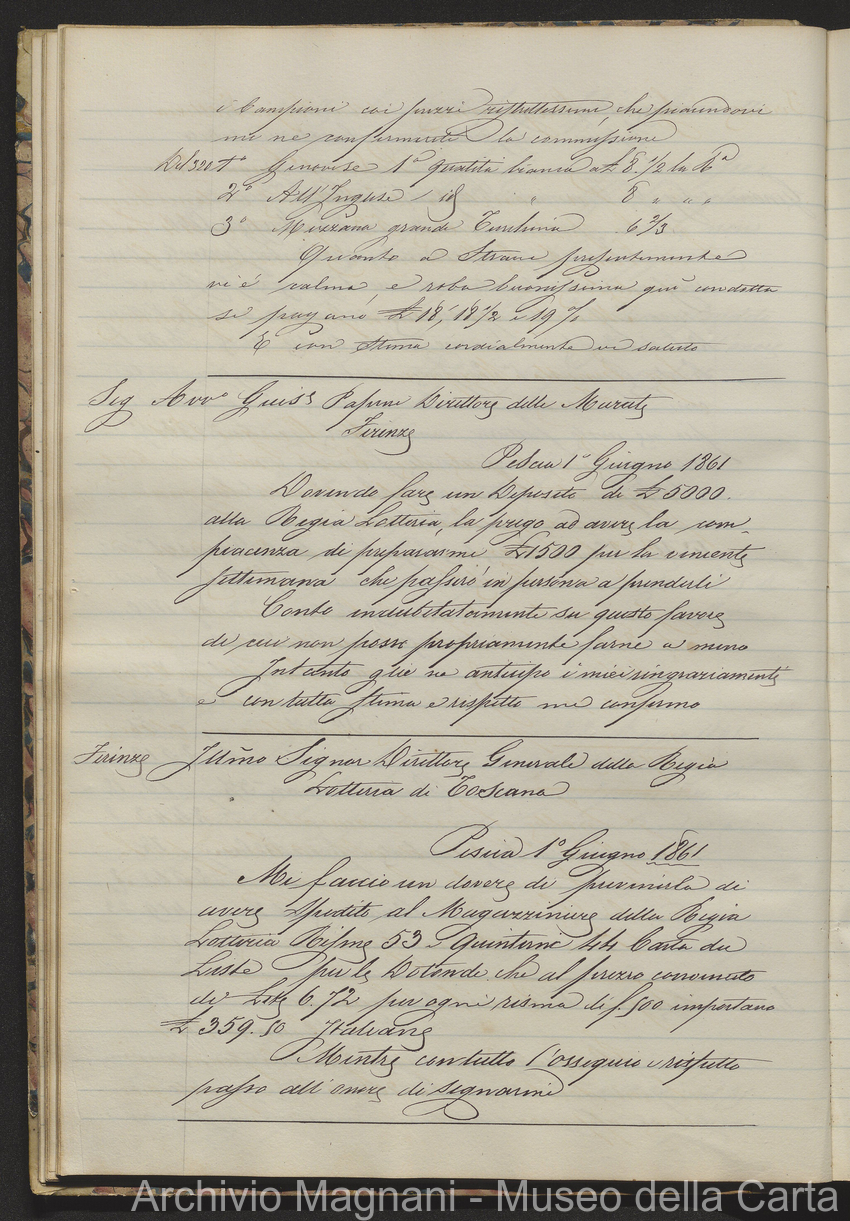 i Campioni coi prezzi ristrettissimi, che piacendovi
me ne confermerete la commissione
Del 320 1º Genovese 1ª qualità bianca a £ 8. 1/2 la lª
2º All'Inglese / id " 8 " " "
3º Mezzana grande Turchina 6 2/3
Quanto a Stracci presentemente
vi è calma e roba buonissima qui condotta
si pagano £ 18, 18 1/2 a 19 %
E con stima cordialmente vi saluto
Sig Avvº Giuise Papini Direttore delle Murate
Firenze
Pescia 1º Giugno 1861
Dovendo fare un Deposito di £ 5000.
alla Regia Lotteria, la prego ad avere la com_
piacenza di prepararmi £ 1500 per la vincente
Settimana che passerò in persona a prenderli
Conto indubitatamente su questo favore
di cui non posso propriamente farne a meno
Intanto glie ne anticipo i miei ringraziamenti
e con tutta stima e rispetto mi confermo
Firenze Illmo Signor Direttore Generale della Regia
Lotteria di Toscana
Pescia 1º Giugno 1861
Mi faccio un dovere di prevenirla di
avere spedito al Magazziniere della Regia
Lotteria Risme 53. Quinterni 44 Carta da
Liste per le Dotande che al prezzo convenuto
di Lire 6.72 per ogni risma di f. 500 importano
£ 359.50 Italiane
Mentre con tutto l'ossequio e rispetto
passo all'onore di segnarmi
Archivio Magnani - Museo della Carta